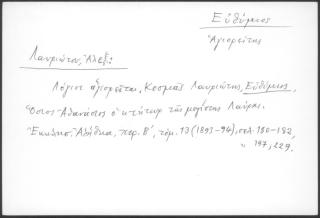 Εὐθύμιος
Ἁγιορείτης
Λαυριώτου, Ἀλεξ:
Λόγιοι ἁγιορεῖται, Κοσμᾶς Λαυριώτης, Εὐθύμιος,
Ὅσιος Ἀθανάσιος ὁ κτήτωρ τῆς μεγίστης Λαύρας.
Ἐκκλησ. Ἀλήθεια, περ. Β', τόμ. 13 (1893-94), σελ. 180-182,
" 197, 229.